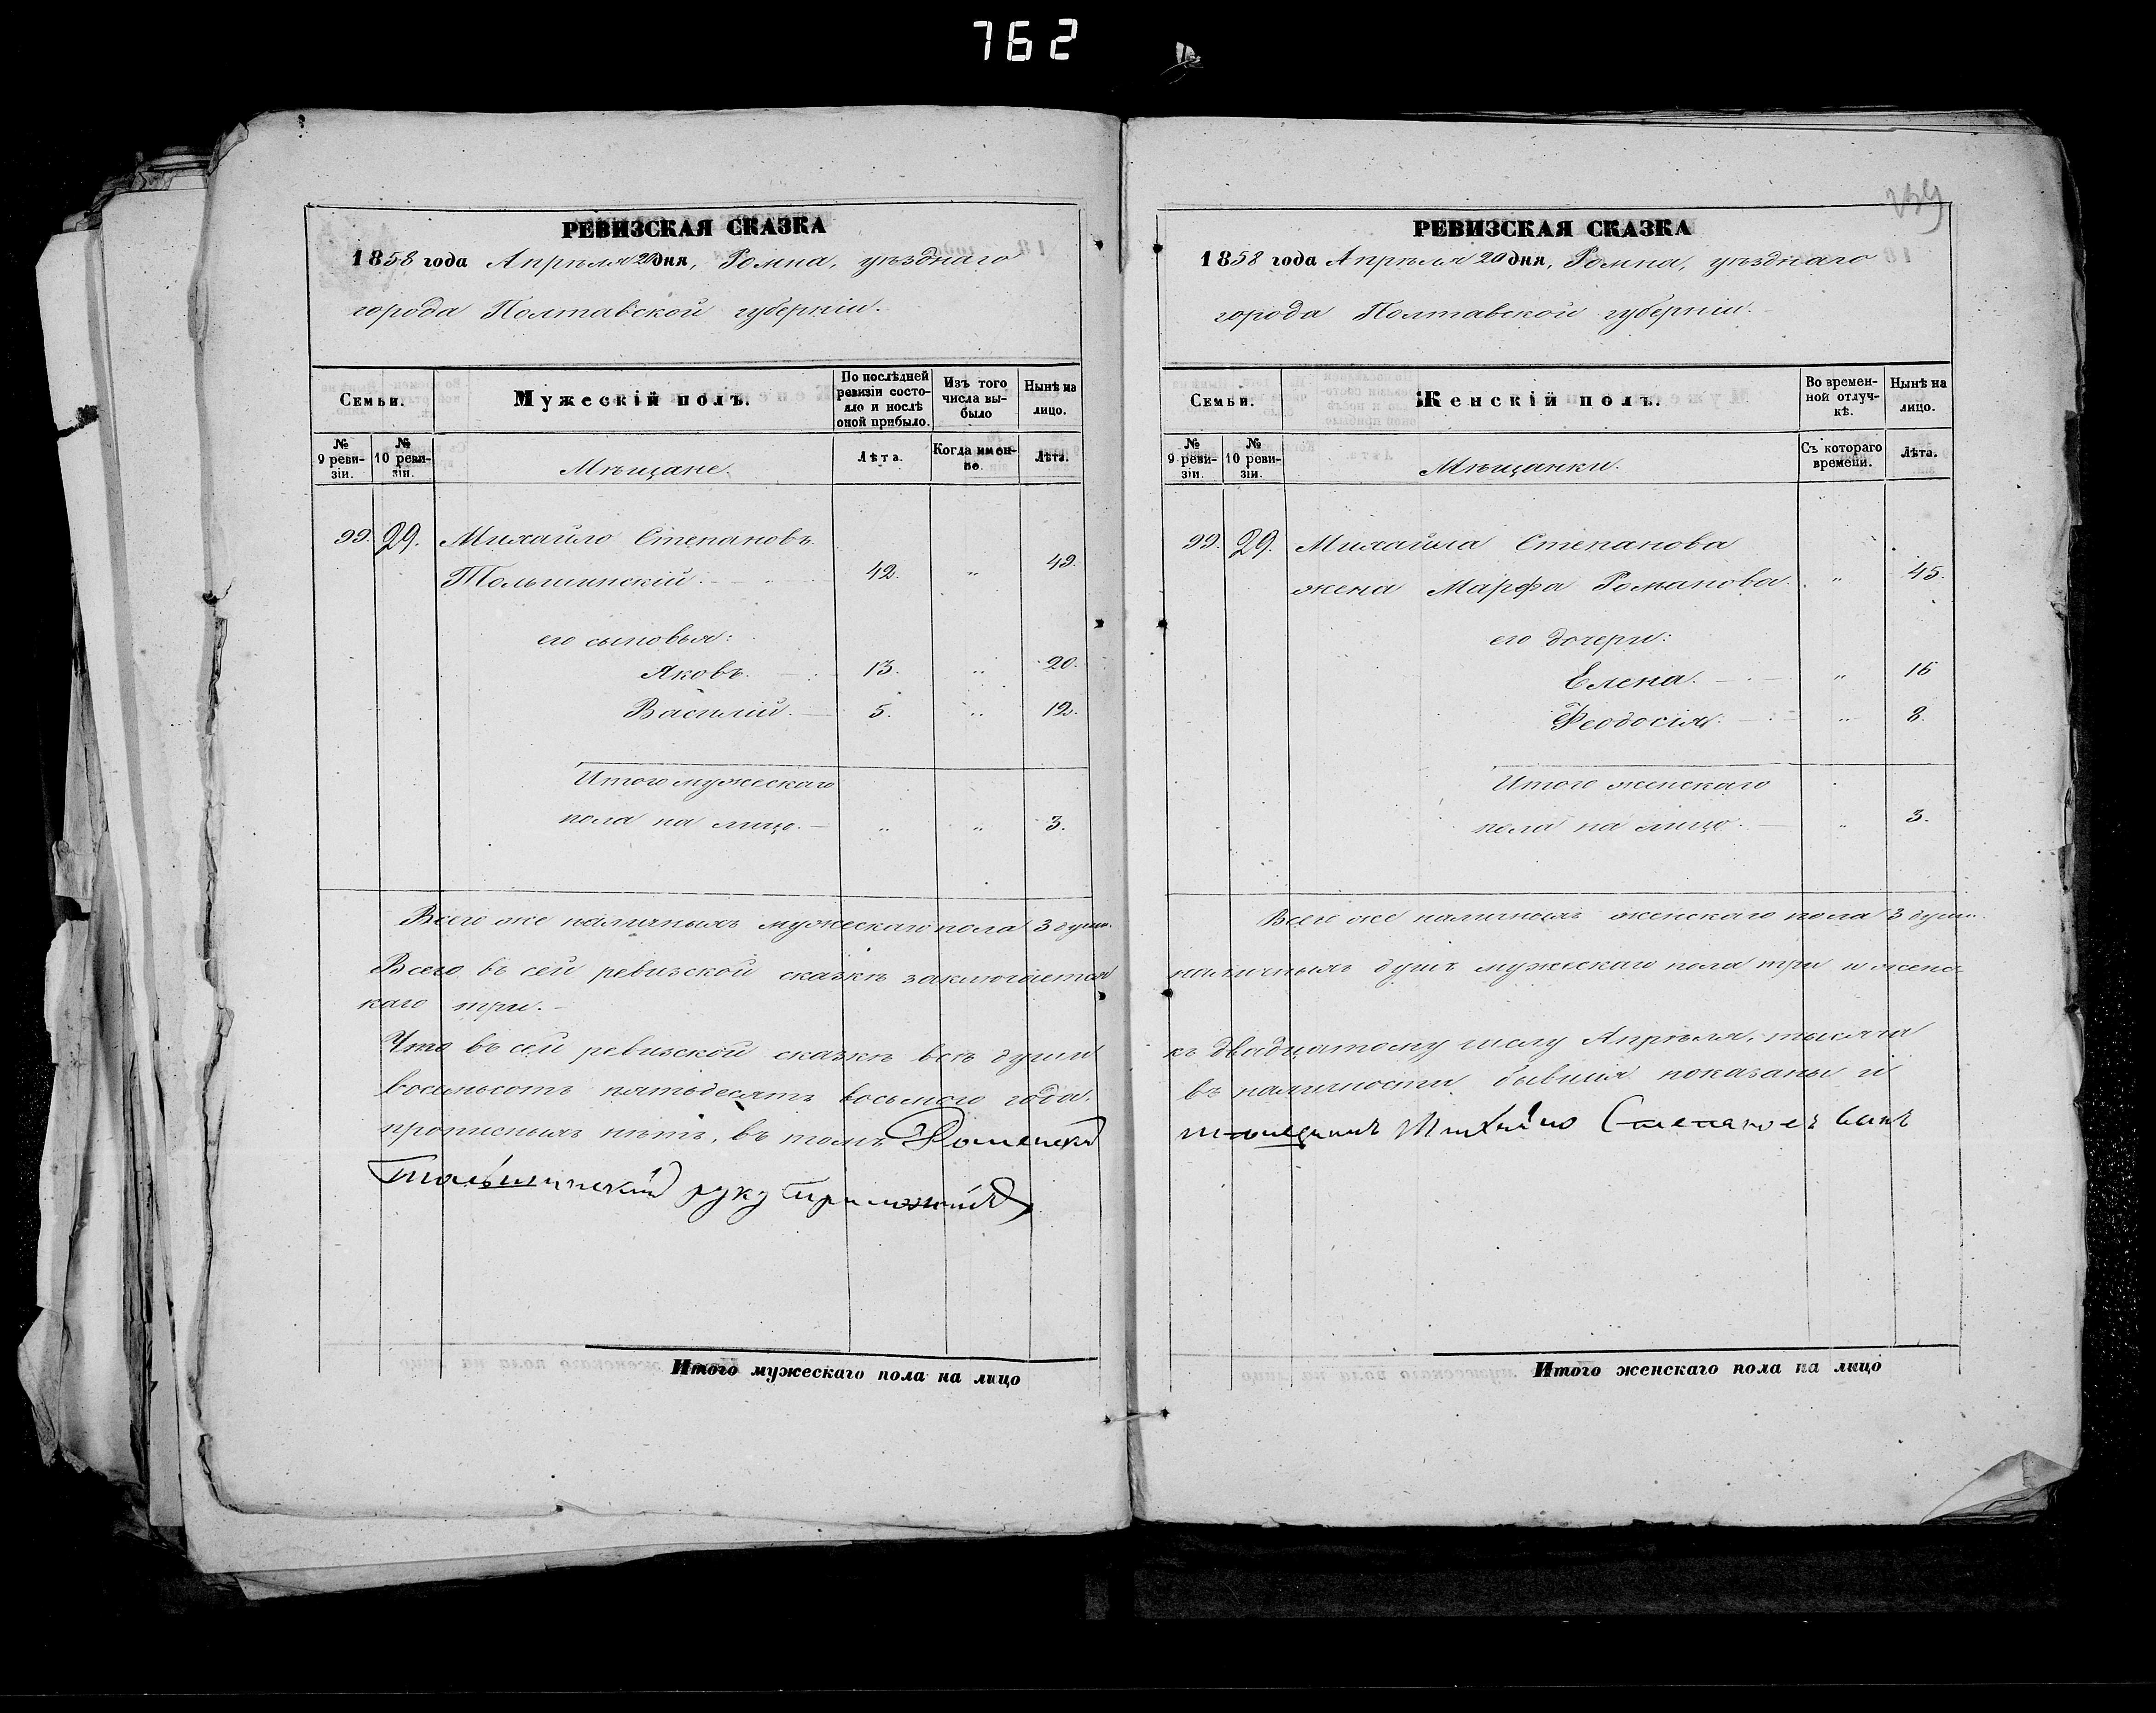 762
РЕВИЗСКАЯ СКАЗКА
1858 года Апрѣля 20 дня, Ромна, уѣзднаго
города Полтавской губерніи.
Семьи.
Мужескій полъ.
По послѣдней ревизіи состояло и послѣ оной прибыло.
Изъ того числа выбыло
Нынѣ на лицо.
№ 9 ревизіи.
№ 10 ревизіи.
Мѣщане.
Лѣта.
Когда именно.
Лѣта.
99. 29. Михайло Степановъ
Тольшинскій. 42. „ 49.
его сыновья:
Яковъ. 13. „ 20.
Василій. 5. „ 12.
Итого мужескаго
пола на лицо. „ „ 3.
Всего же наличныхъ мужескаго пола 3 души.
Всего въ сей ревизской сказкѣ заключается
каго три.
Что въ сей ревизской сказкѣ всѣ души
восемьсотъ пятьдесятъ восьмого года,
прописныхъ нѣтъ, въ томъ Роменскій
Тольшинский руку приложилъ
Итого мужескаго пола на лицо
239
РЕВИЗСКАЯ СКАЗКА
1858 года Апрѣля 20 дня, Ромна, уѣзднаго
города Полтавской губерніи.
Семьи.
Женскій полъ.
Во временной отлучкѣ.
Нынѣ на лицо.
№ 9 ревизіи.
№ 10 ревизіи.
Мѣщанки.
Съ котораго времени.
Лѣта.
99. 29. Михайла Степанова
жена Марфа Романова. „ 45.
его дочери:
Елена. „ 16
Феодосія. „ 8.
Итого женскаго
пола на лицо. „ 3.
Всего же наличныхъ женскаго пола 3 души.
наличныхъ душъ мужескаго пола три и женс-
къ двадцатому числу Апрѣля, тысяча
въ наличности бывшія показаны и
Михайло Степановъ сынъ
Итого женскаго пола на лицо